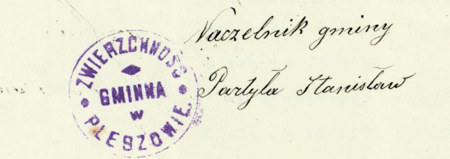 Naczelnik gminy
Partyła Stanisław
ZWIERZCHNOŚĆ
GMINNA
W
PLESZOWIE.